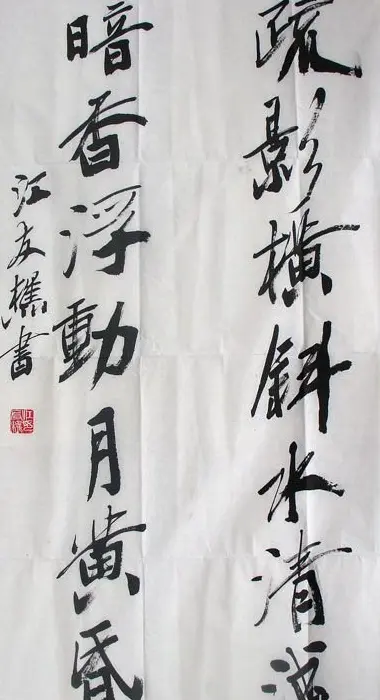 疏影橫斜水清淺
暗香浮動月黄昏
江友樵書